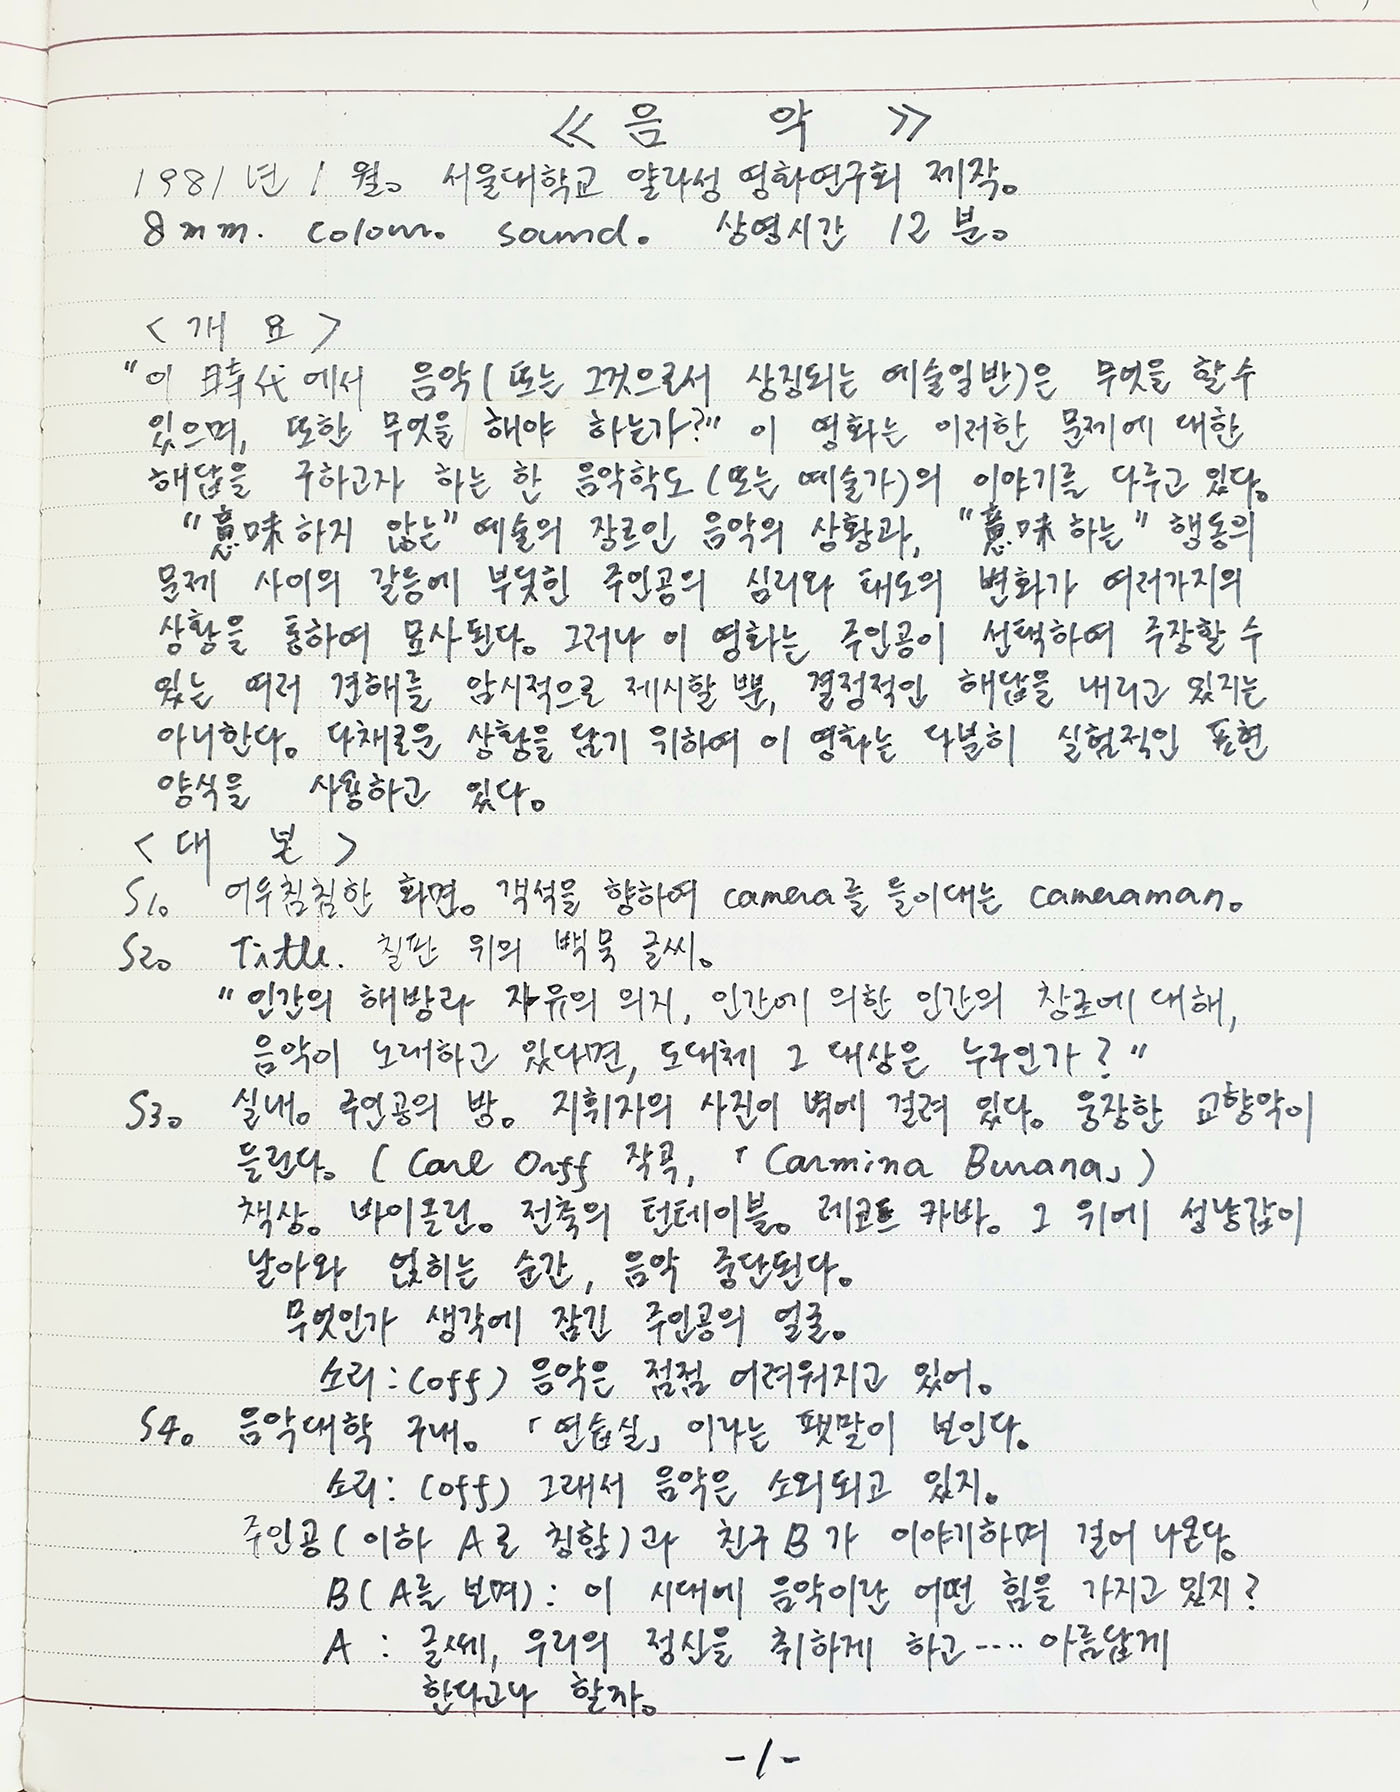 ≪ 음 악 ≫
1981년 1월. 서울대학교 얄라성 영화연구회 제작.
8mm. colour. sound. 상영시간 12분.
< 개 요 >
"이 時代에서 음악(또는 그것으로서 상징되는 예술일반)은 무엇을 할 수
있으며, 또한 무엇을 해야 하는가?" 이 영화는 이러한 문제에 대한
해답을 구하고자 하는 한 음악학도(또는 예술가)의 이야기를 다루고 있다.
"意味하지 않는" 예술의 장르인 음악의 상황과, "意味하는" 행동의
문제 사이의 갈등에 부딪힌 주인공의 심리와 태도의 변화가 여러가지의
상황을 통하여 묘사된다. 그러나 이 영화는 주인공이 선택하여 주장할 수
있는 여러 견해를 암시적으로 제시할 뿐, 결정적인 해답을 내리고 있지는
아니한다. 다채로운 상황을 담기 위하여 이 영화는 다분히 실험적인 표현
양식을 사용하고 있다.
< 대 본 >
S1. 어두침침한 화면. 객석을 향하여 camera를 들이대는 cameraman.
S2. Title. 칠판 위의 백묵 글씨.
"인간의 해방과 자유의 의지, 인간에 의한 인간의 창조에 대해,
음악이 노래하고 있다면, 도대체 그 대상은 누구인가?"
S3. 실내. 주인공의 방. 지휘자의 사진이 벽에 걸려 있다. 웅장한 교향악이
들린다. (Carl Orff 작곡, 「Carmina Burana」)
책상. 바이올린. 전축의 턴테이블. 레코드 카바. 그 위에 성냥갑이
날아와 얹히는 순간, 음악 중단된다.
무엇인가 생각에 잠긴 주인공의 얼굴.
소리:(off) 음악은 점점 어려워지고 있어.
S4. 음악대학 구내. 「연습실」이라는 팻말이 보인다.
소리: (off) 그래서 음악은 소외되고 있지.
주인공(이하 A로 칭함)과 친구 B가 이야기하며 걸어 나온다.
B(A를 보며): 이 시대에 음악이란 어떤 힘을 가지고 있지?
A : 글쎄, 우리의 정신을 취하게 하고‥‥ 아름답게
한다고나 할까.
-1-